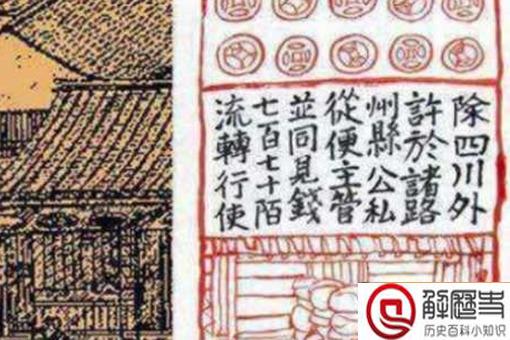 除四川外
許於諸路
州縣公私
從便主管
並同見錢
七百七十陌
流轉行使
解歷史
历史百科小知识